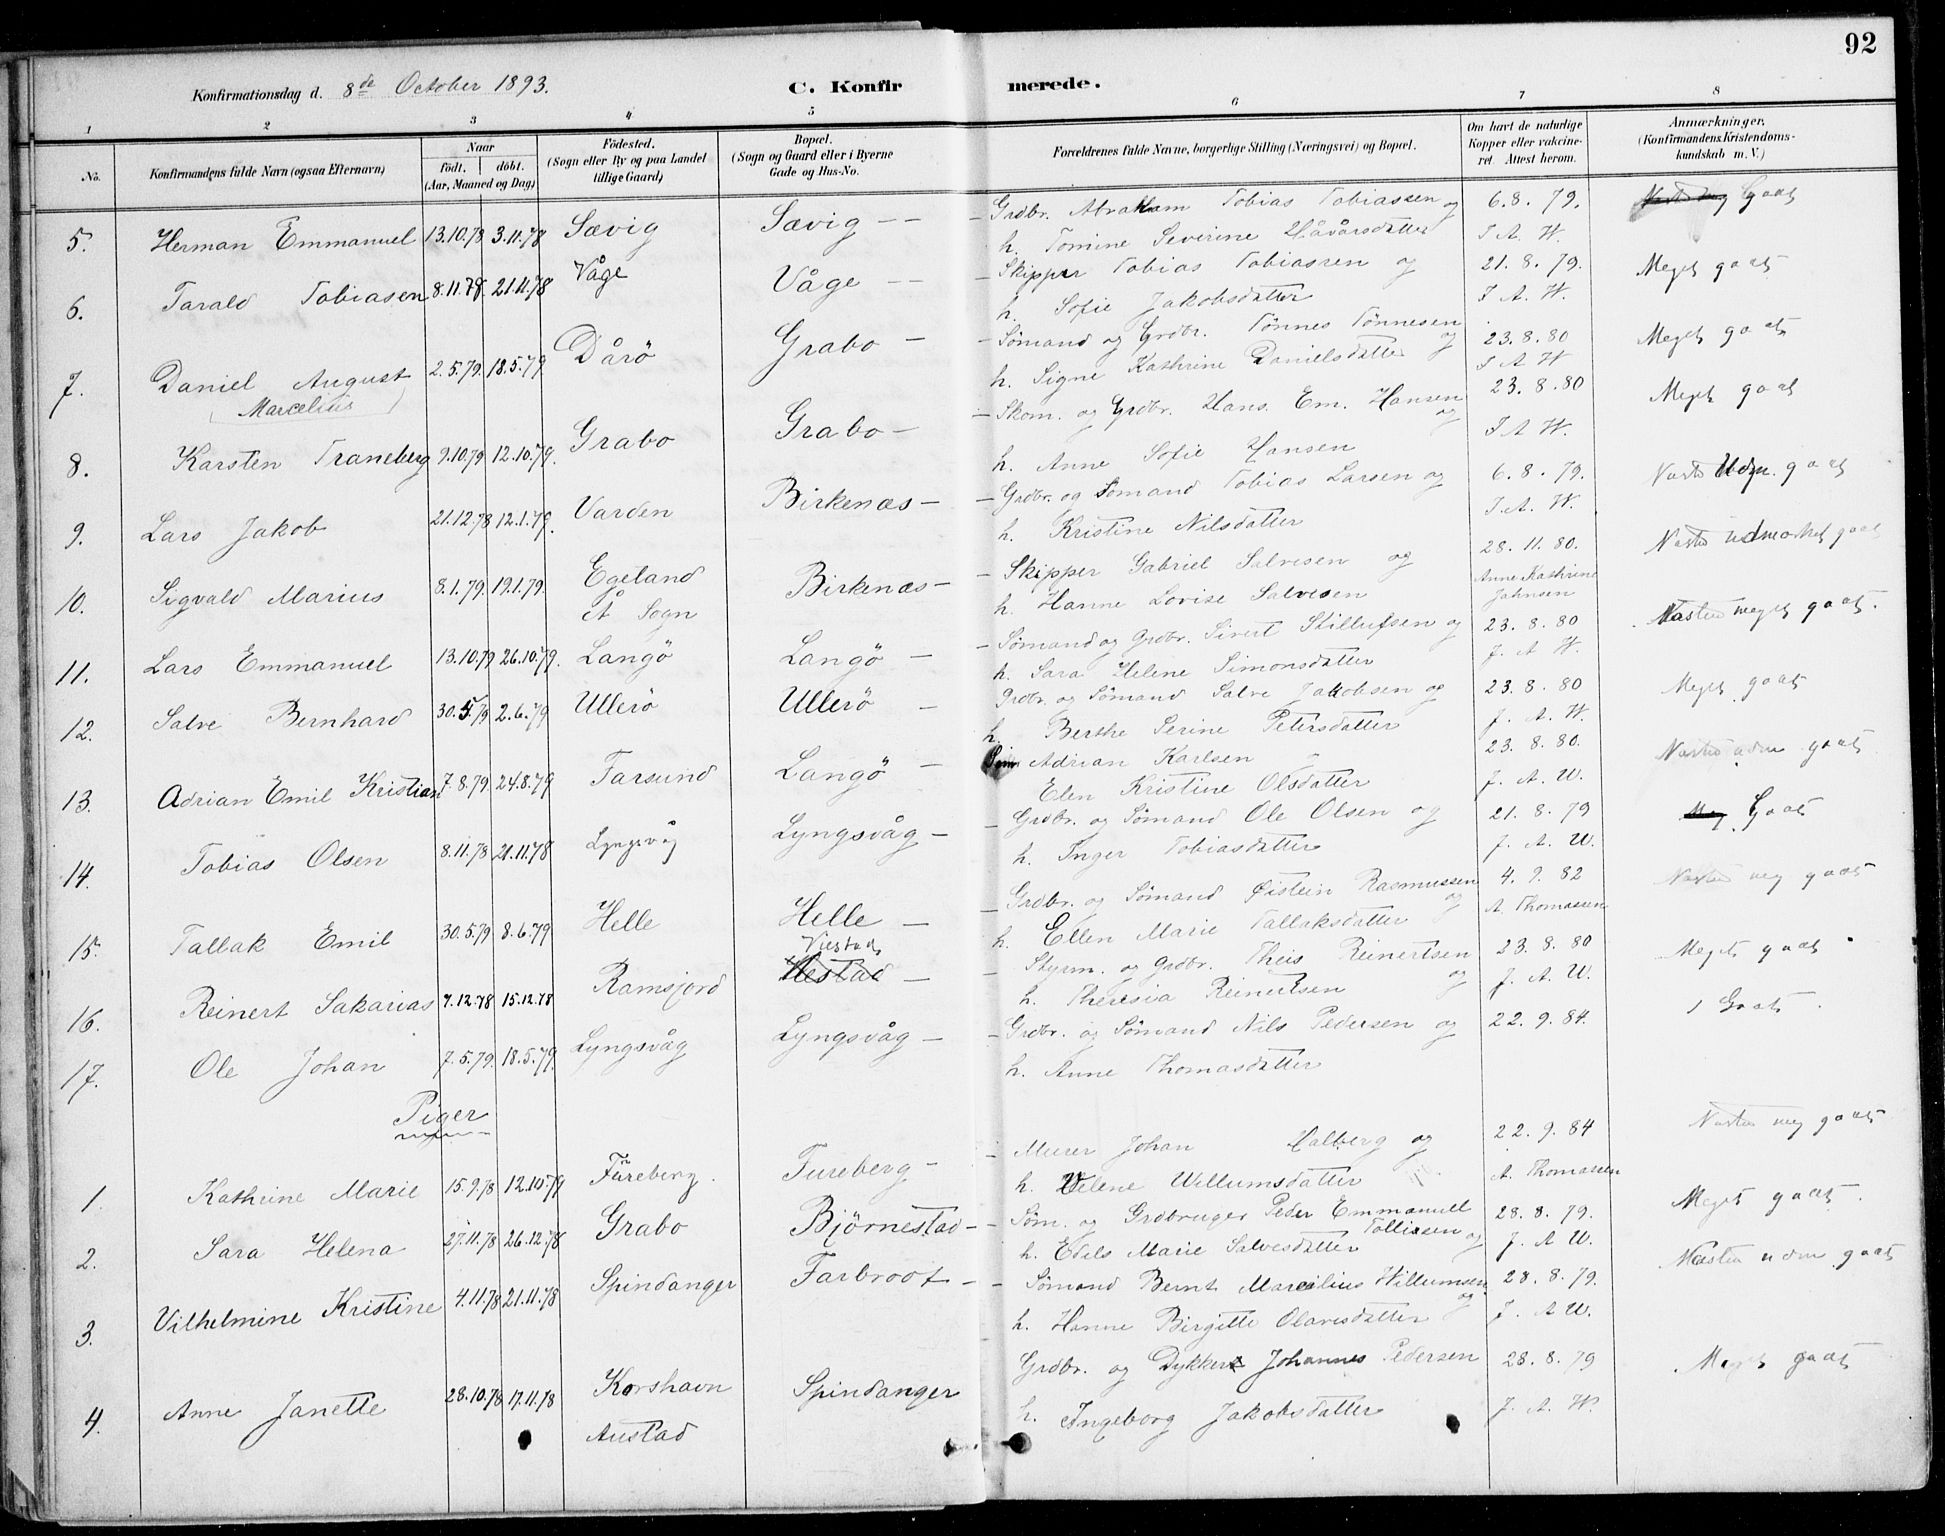 92
Konfirmationsdag d. 8de October 1893. C. Konfirmerede.
1 2 3 4 5 6 7 8
No. Konfirmandens fulde Navn (ogsaa Efternavn) Naar født. døbt. (Aar, Maaned og Dag) Fødested. (Sogn eller By og paa Landet tillige Gaard) Bopæl. (Sogn og Gaard eller i Byerne Gade og Hus-No. Forældrenes fulde Navne, borgerlige Stilling (Næringsvei) og Bopæl. Om havt de naturlige Kopper eller vakcineret. Attest herom. Anmærkninger. (Konfirmandens Kristendomskundskab m. V.)
5. Herman Emmanuel 13.10.78 3.11.78 Sævig Sævig - - - Grdbr. Abraham Tobias Tobiassen og 6.8.79. Gaat
h. Tomine Severine Håvårsdatter J A. W.
6. Tarald Tobiasen 8.11.78. 21.11.78 Våge Våge - - - Skipper Tobias Tobiassen og 21.8.79. Meget gaat
h. Sofie Jakobsdatter J A. W.
7. Daniel August (Marcelius) 2.5.79. 18.5.79 Dårø Grabo - - Sømand og Grdbr. Tønnes Tønnesen og 23.8.80 Meget gaat
h. Signe Kathrine Danielsdatter J A W
8. Karsten Traneberg 9.10.79 12.10.79. Grabo Grabo - - Skom. og Grdbr. Hans. Em. Hansen og 23.8.80 Meget gaat
h. Anne Sofie Hansen J A W.
9. Lars Jakob 21.12.78 12.1.79. Varden Birkenæs - - Grdbr. og Sømand Tobias Larsen og 6.8.79. Næsten Udm. gaat
h. Kristine Nilsdatter J. A. W.
10. Sigvald Marius 8.1.79. 19.1.79. Egeland Å Sogn Birkenæs - - Skipper Gabriel Salvesen og 28.11.80. Næsten udmærket gaat
h. Hanne Lovise Salvesen Anne Kathrine Jahnsen
11. Lars Emmanuel 13.10.79 26.10.79. Langø Langø - - Sømand og Grdbr. Sivert Stillufsen og 23.8.80 Næsten meget gaat.
h. Sara Helene Simonsdatter J. A W.
12. Salve Bernhard 30.5.79 2.6.79 Ullerø Ullerø - Grdbr. og Sømand Salve Jakobsen og 23.8.80 Meget gaat
h. Berthe Serine Petersdatter J. A. W.
13. Adrian Emil Kristian 7.8.79. 24.8.79 Tarsund Langø - Søm Adrian Karlsen 23.8.80. Næsten udm gaat
Elen Kristine Olsdatter J. A. W.
14. Tobias Olsen 8.11.78 21.11.78 Lyngsvåg Lyngsvåg - - Grdbr. og Sømand Ole Olsen og 21.8.79 Meg Gaat
h. Inger Tobiasdatter J. A. W.
15. Tallak Emil 30.5.79 8.6.79 Helle Helle - - Grdbr. og Sømand Øistein Rasmussen og 4.9.82 Næsten meg gaat
h. Ellen Marie Tallaksdatter A. Thomassen
16. Reinert Sakarias 7.12.78 15.12.78 Ramsjord Viestad Hestad - - Styrm. og Grdbr. Theis Reinertsen og 23.8.80 Meget gaat
h. Theresia Reinertsen J. A. W.
17. Ole Johan 7.5.79. 18.5.79. Lyngsvåg Lyngsvåg - - Grdbr. og Sømand Nils Pedersen og 22.9.84. Gaat
h. Anne Thomasdatter
Piger
1. Kathrine Marie 15.9.78 12.10.79 Fureberg. Fureberg - - Murer Johan Halberg og 22.9.84 Næsten meg gaat
h. Velene Willumsdatter A. Thomassen
2. Sara Helena 27.11.78 26.12.78 Grabo Bjørnestad - - Søm. og Grdbruger Peder Emmanuel Tollissen og 28.8.79. Meget gaat.
h. Edels Marie Salvesdatter J. A W.
3. Vilhelmine Kristine 4.11.78 21.11.78 Spindanger Farbroot - - Sømand Bernt Marcilius Willumsen og 28.8.79. Næsten udm gaat
h. Hanne Birgitte Olavesdatter J. A W.
4. Anne Janette 28.10.78 17.11.78 Korshavn Austad Spindanger Grdbr. og Dykker Johannes Pedersen 28.8.79 Meget gaat
h. Ingeborg Jakobsdatter J. A. W.